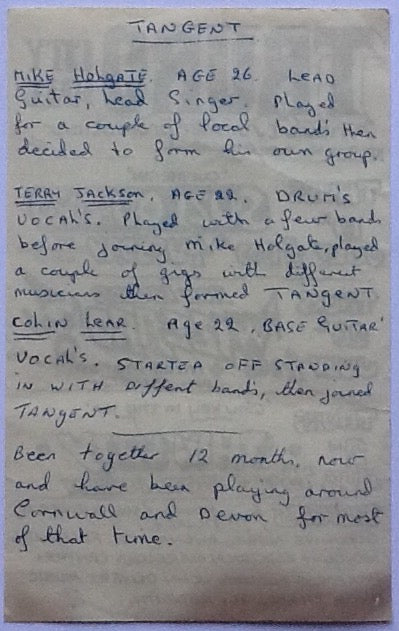 TANGENT
MIKE HOLGATE. AGE 26. LEAD
Guitar, Lead Singer. Played
for a couple of local bands then
decided to form his own group.
TERRY JACKSON. AGE 22. DRUM'S
VOCAL'S. Played with a few bands
before joining Mike Holgate, played
a couple of gigs with different
musicians then formed TANGENT.
COLIN LEAR. Age 22. BASE GUITAR'
VOCAL'S. STARTED OFF STANDING
IN WITH Diffent band's, then joined
TANGENT.
Been together 12 months, now
and have been playing around
Cornwall and Devon for most
of that time.